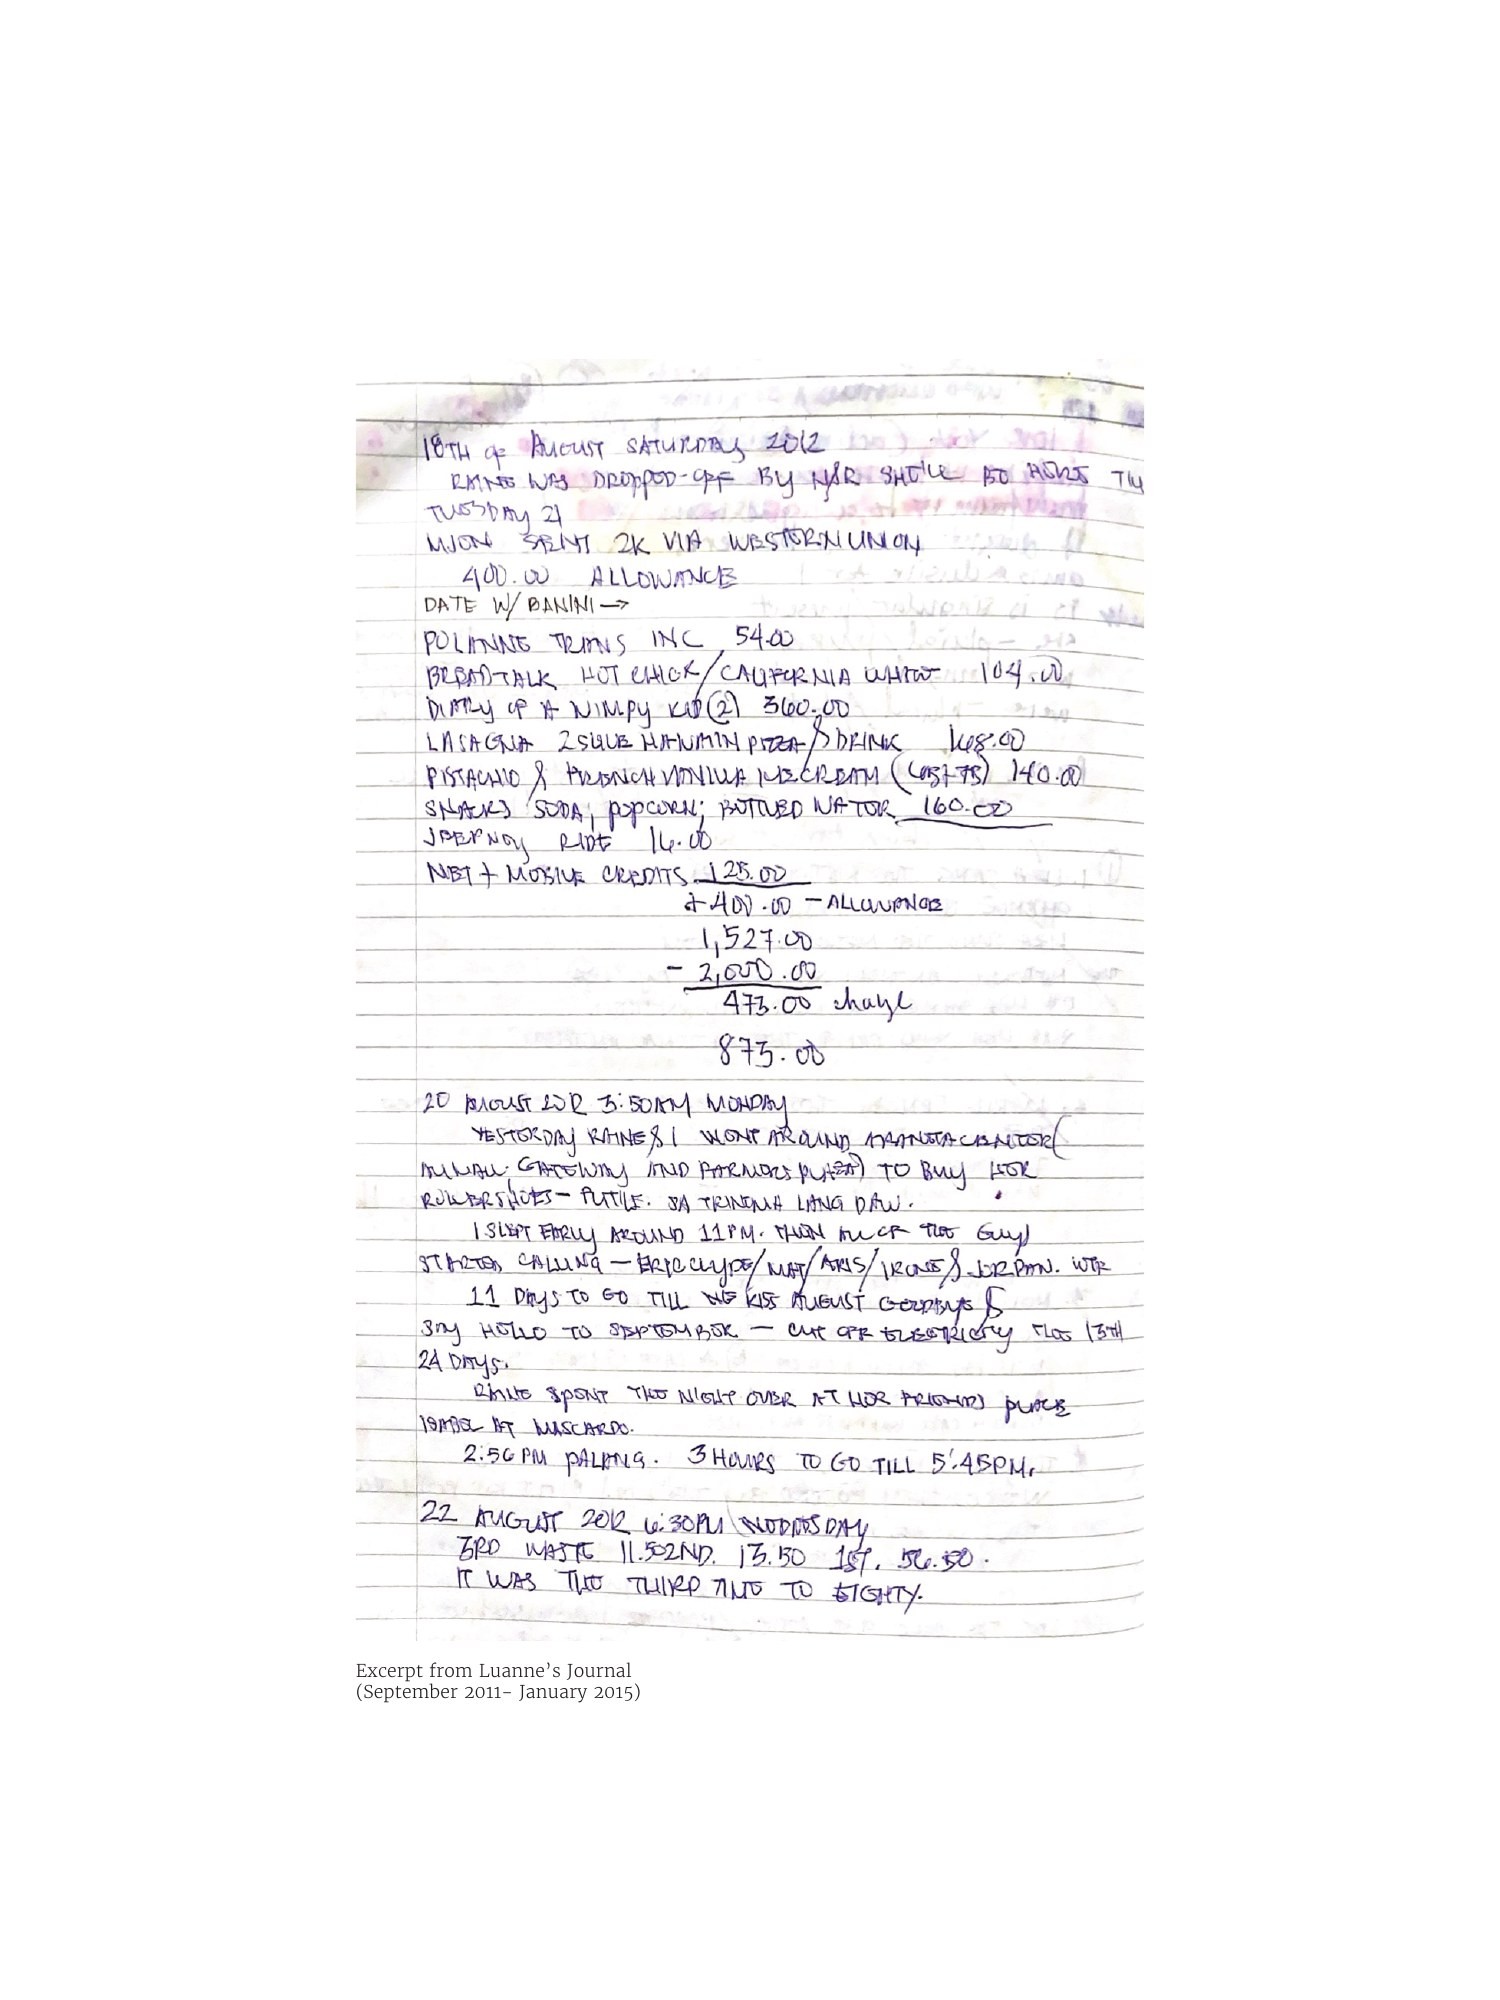 18TH OF AUGUST SATURDAY 2012
RAINE WAS DROPPED-OFF BY N/R SHE'LL BE HERE TILL
TUESDAY 21
MJON SENT 2K VIA WESTERN UNION
400.00 ALLOWANCE
DATE W/ BANINI →
POLANNE TRANS INC 54.00
BREADTALK HOT CHICK/CALIFORNIA WHITE 104.00
DIARY OF A WIMPY KID (2) 360.00
LASAGNA 2 SLICE PIZZA & DRINK 168.00
PISTACHIO & FRENCH VANILLA ICE CREAM (65+75) 140.00
SNACKS SODA, POPCORN, BOTTLED WATER 160.00
JEEPNEY RIDE 16.00
NET + MOBILE CREDITS 125.00
+ 400.00 - ALLOWANCE
1,527.00
- 2,000.00
473.00 change
873.00
20 AUGUST 2012 3:50AM MONDAY
YESTERDAY RAINE & I WENT AROUND ARANETA CENTER (
ALIMALL, GATEWAY AND FARMERS PLAZA) TO BUY HER
RUBBERSHOES - FUTILE. SA TRINOMA LANG DAW.
I SLEPT EARLY AROUND 11PM. THEN ALL OF THE GUYS
STARTED CALLING - ERIC CLYDE/MAT/ARIS/IRONE & JORDAN. WTF
11 DAYS TO GO TILL WE KISS AUGUST GOODBYE &
SAY HELLO TO SEPTEMBER - CUT OFF ELECTRICITY TILL 13TH
24 DAYS.
RAINE SPENT THE NIGHT OVER AT HER FRIENDS PLACE
ISABEL AT
2:56PM PALANG. 3 HOURS TO GO TILL 5:45PM.
22 AUGUST 2012 6:30PM WEDNESDAY
3RD WASTE 11.50 2ND. 13.50 1ST. 56.50.
IT WAS THE THIRD TIME TO EIGHTY.
Excerpt from Luanne's Journal
(September 2011- January 2015)